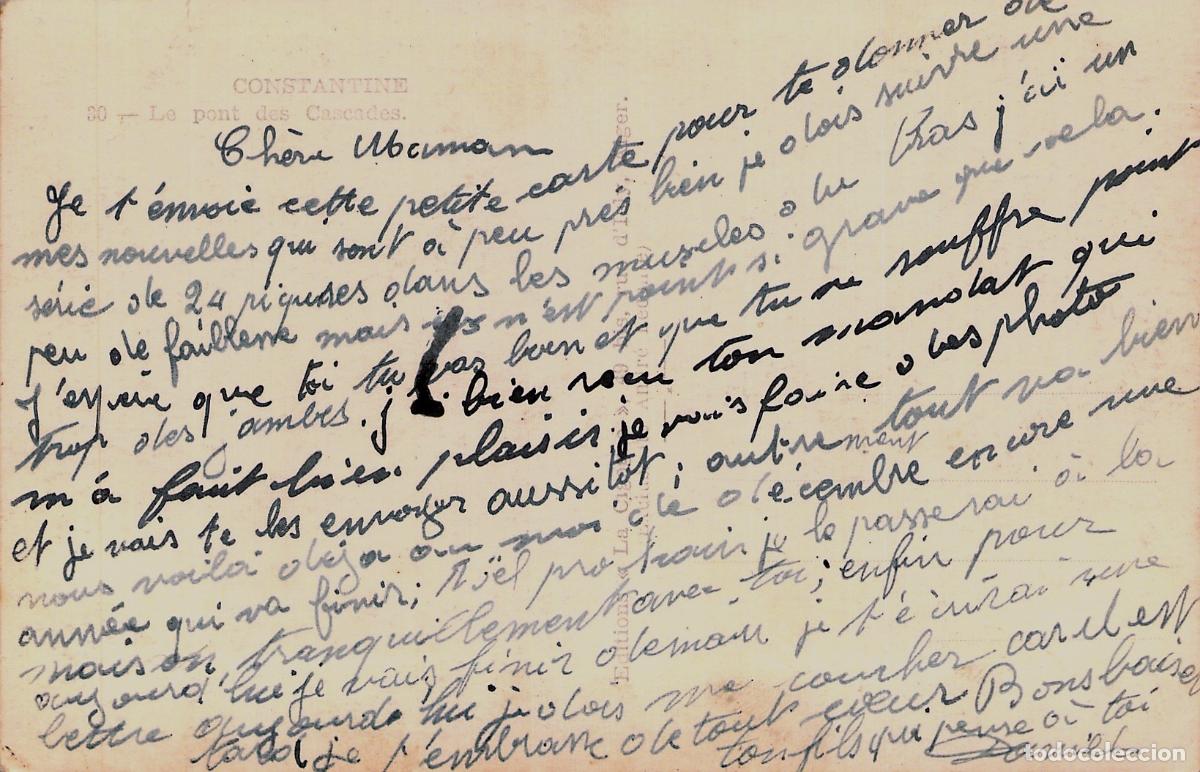 CONSTANTINE
30 — Le pont des Cascades.
Chère Maman
Je t'envoie cette petite carte pour te donner de
mes nouvelles qui sont à peu près bien je dois suivre une
série de 24 piqures dans les muscles du bras j'ai un
peu de faiblesse mais n'est point si grave que cela.
J'espère que toi tu vas bien et que tu ne souffre point
trop des jambes. j'ai bien reçu ton mandat qui
m'a fait bien plaisir je vais faire des photo
et je vais te les envoyer aussitôt; autrement tout va bien
nous voilà déja au moi de décembre encore une
année qui va finir; Noël prochain je le passerai à la
maison tranquillement avec toi; enfin pour
aujourd'hui je vais finir demain je t'écrirai une
lettre aujourd'hui je dois me coucher car il est
tard je t'embrasse de tout cœur Bons baiser
ton fils qui pense à toi
todocoleccion